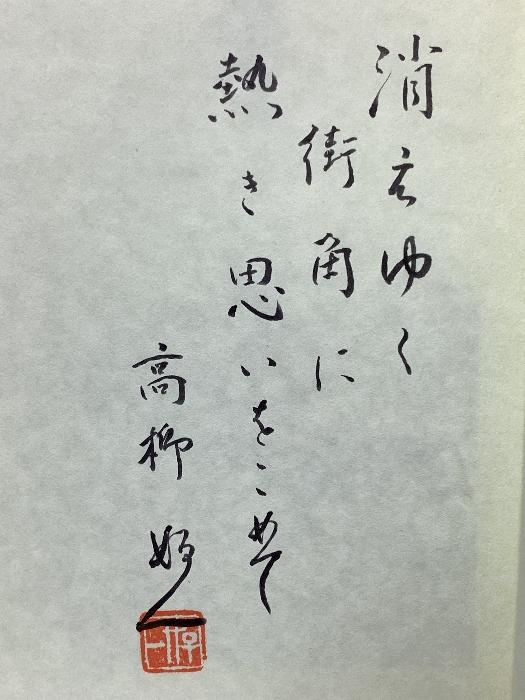 消えゆく
街角に
熱き思いをこめて
高柳